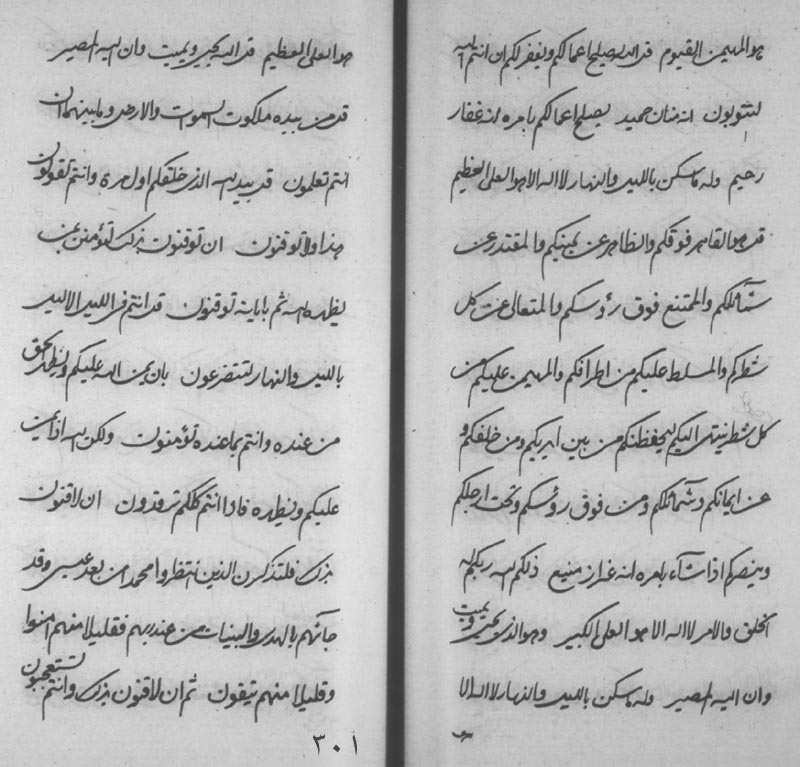 هو المهيمن القيوم قل الله يصلح اعمالكم ويغفر لكم ان انتم اليه
لتتوبون انه منان حميد يصلح اعمالكم بامره انه غفار
رحيم وله ما سكن بالليل والنهار لا اله الا هو العلى العظيم
قل هو القاهر فوقكم والظاهر عن يمينكم والمقتدر عن
شمائلكم والممتنع فوق رؤسكم والمتعالى عن كل
شطركم والمسلط عليكم من اطرافكم والمهيمن عليكم من
كل شطر ينتهى اليكم ليحفظنكم من بين ايديكم ومن خلفكم و
عن ايمانكم وشمائلكم ومن فوق رؤسكم وتحت ارجلكم
وينصركم اذا شاء بامره انه عزاز منيع ذلكم الله ربكم له
الخلق والامر لا اله الا هو العلى الكبير وهو الذى يحيى ويميت
وان اليه المصير وله ما سكن بالليل والنهار لا اله الا
هو
هو العلى العظيم قل الله يحيى ويميت وان اليه المصير
قل من بيده ملكوت السموات والارض وما بينهما ان
انتم تعلمون قل بيد الله الذى خلقكم اول مرة وانتم تقولون
هذا ولا توقنون ان توقنون بذلك لتؤمنن بمن
يظهره الله ثم باياته توقنون قل انتم فى الليل الاليل
بالليل والنهار لتتضرعون بان يمن الله عليكم ويظهر الحق
من عنده وانتم بما عنده تؤمنون ولكن الله اذا يمن
عليكم ويظهره فاذا انتم كلكم ترقدون ان لا قنون
بذلك فلتذكرن الذين انتظروا محمدا من بعد عيسى وقد
جائهم بالهدى والبينات من عند ربهم فقليلا منهم امنوا
وقليلا منهم يتقون ثم ان لا قنون بذلك وانتم تستعجبون
٣٠١